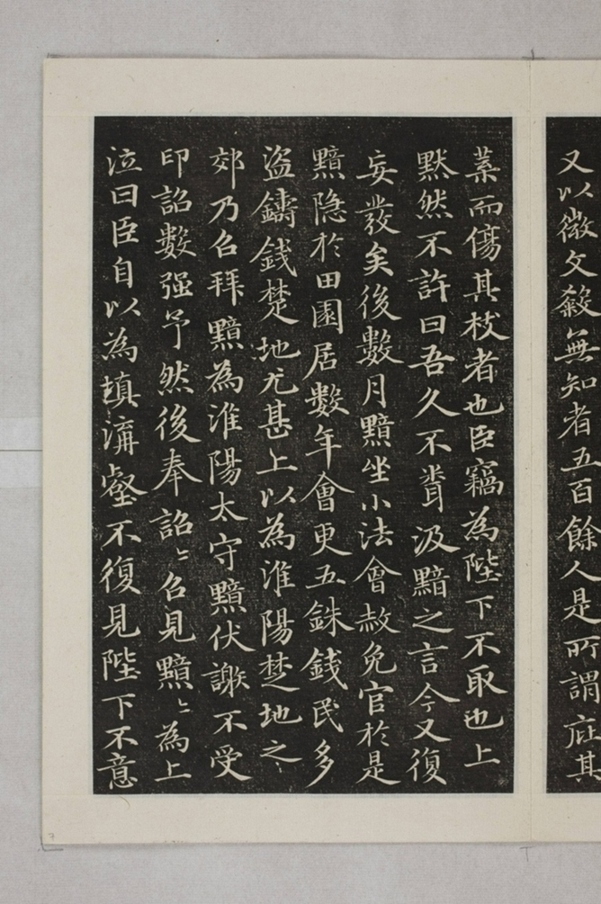 又以微文殺無知者五百餘人是所謂庇其
葉而傷其枝者也臣竊為陛下不取也上
默然不許曰吾久不聞汲黯之言今又復
妄發矣後數月黯坐小法會赦免官於是
黯隐於田園居數年會更五銖錢民多
盜鑄錢楚地尤甚上以為淮陽楚地之
郊乃召拜黯為淮陽太守黯伏謝不受
印詔數强予然後奉詔〻召見黯〻為上
泣曰臣自以為填溝壑不復見陛下不意